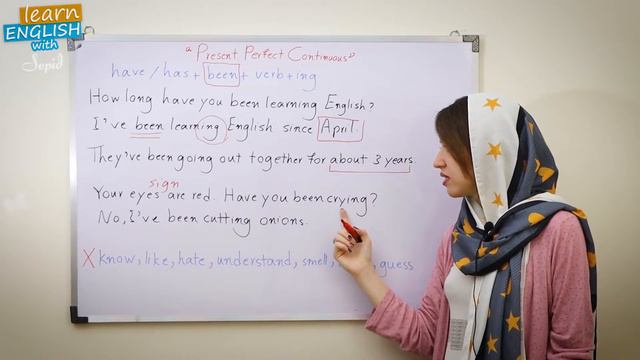 learn
ENGLISH
with
Sepid
"Present Perfect Continuous"
have / has + been + verb + ing
How long have you been learning English?
I've been learning English since April.
They've been going out together for about 3 years.
sign
Your eyes are red. Have you been crying?
No, I've been cutting onions.
X know, like, hate, understand, smell, guess